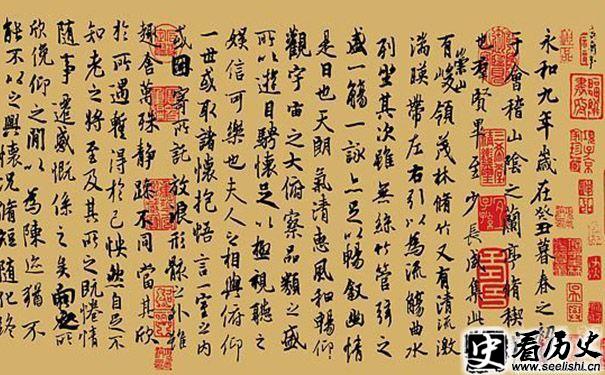 永和九年歲在癸丑暮春之
于會稽山陰之蘭亭脩稧
也羣賢畢至少長咸集此
有崇山峻領茂林脩竹又有清流激
湍暎帶左右引以為流觴曲水
列坐其次雖無絲竹管弦之
盛一觴一詠亦足以暢叙幽情
是日也天朗氣清惠風和暢仰
觀宇宙之大俯察品類之盛
所以遊目騁懷足以極視聽之
娛信可樂也夫人之相與俯仰
一世或取諸懷抱悟言一室之內
或因寄所託放浪形骸之外雖
趣舍萬殊靜躁不同當其欣
於所遇蹔得於己怏然自足不
知老之將至及其所之既惓情
隨事遷感慨係之矣向之所
欣俛仰之閒以為陳迹猶不
能不以之興懷況脩短隨化終
史 看历史
www.seelishi.cn